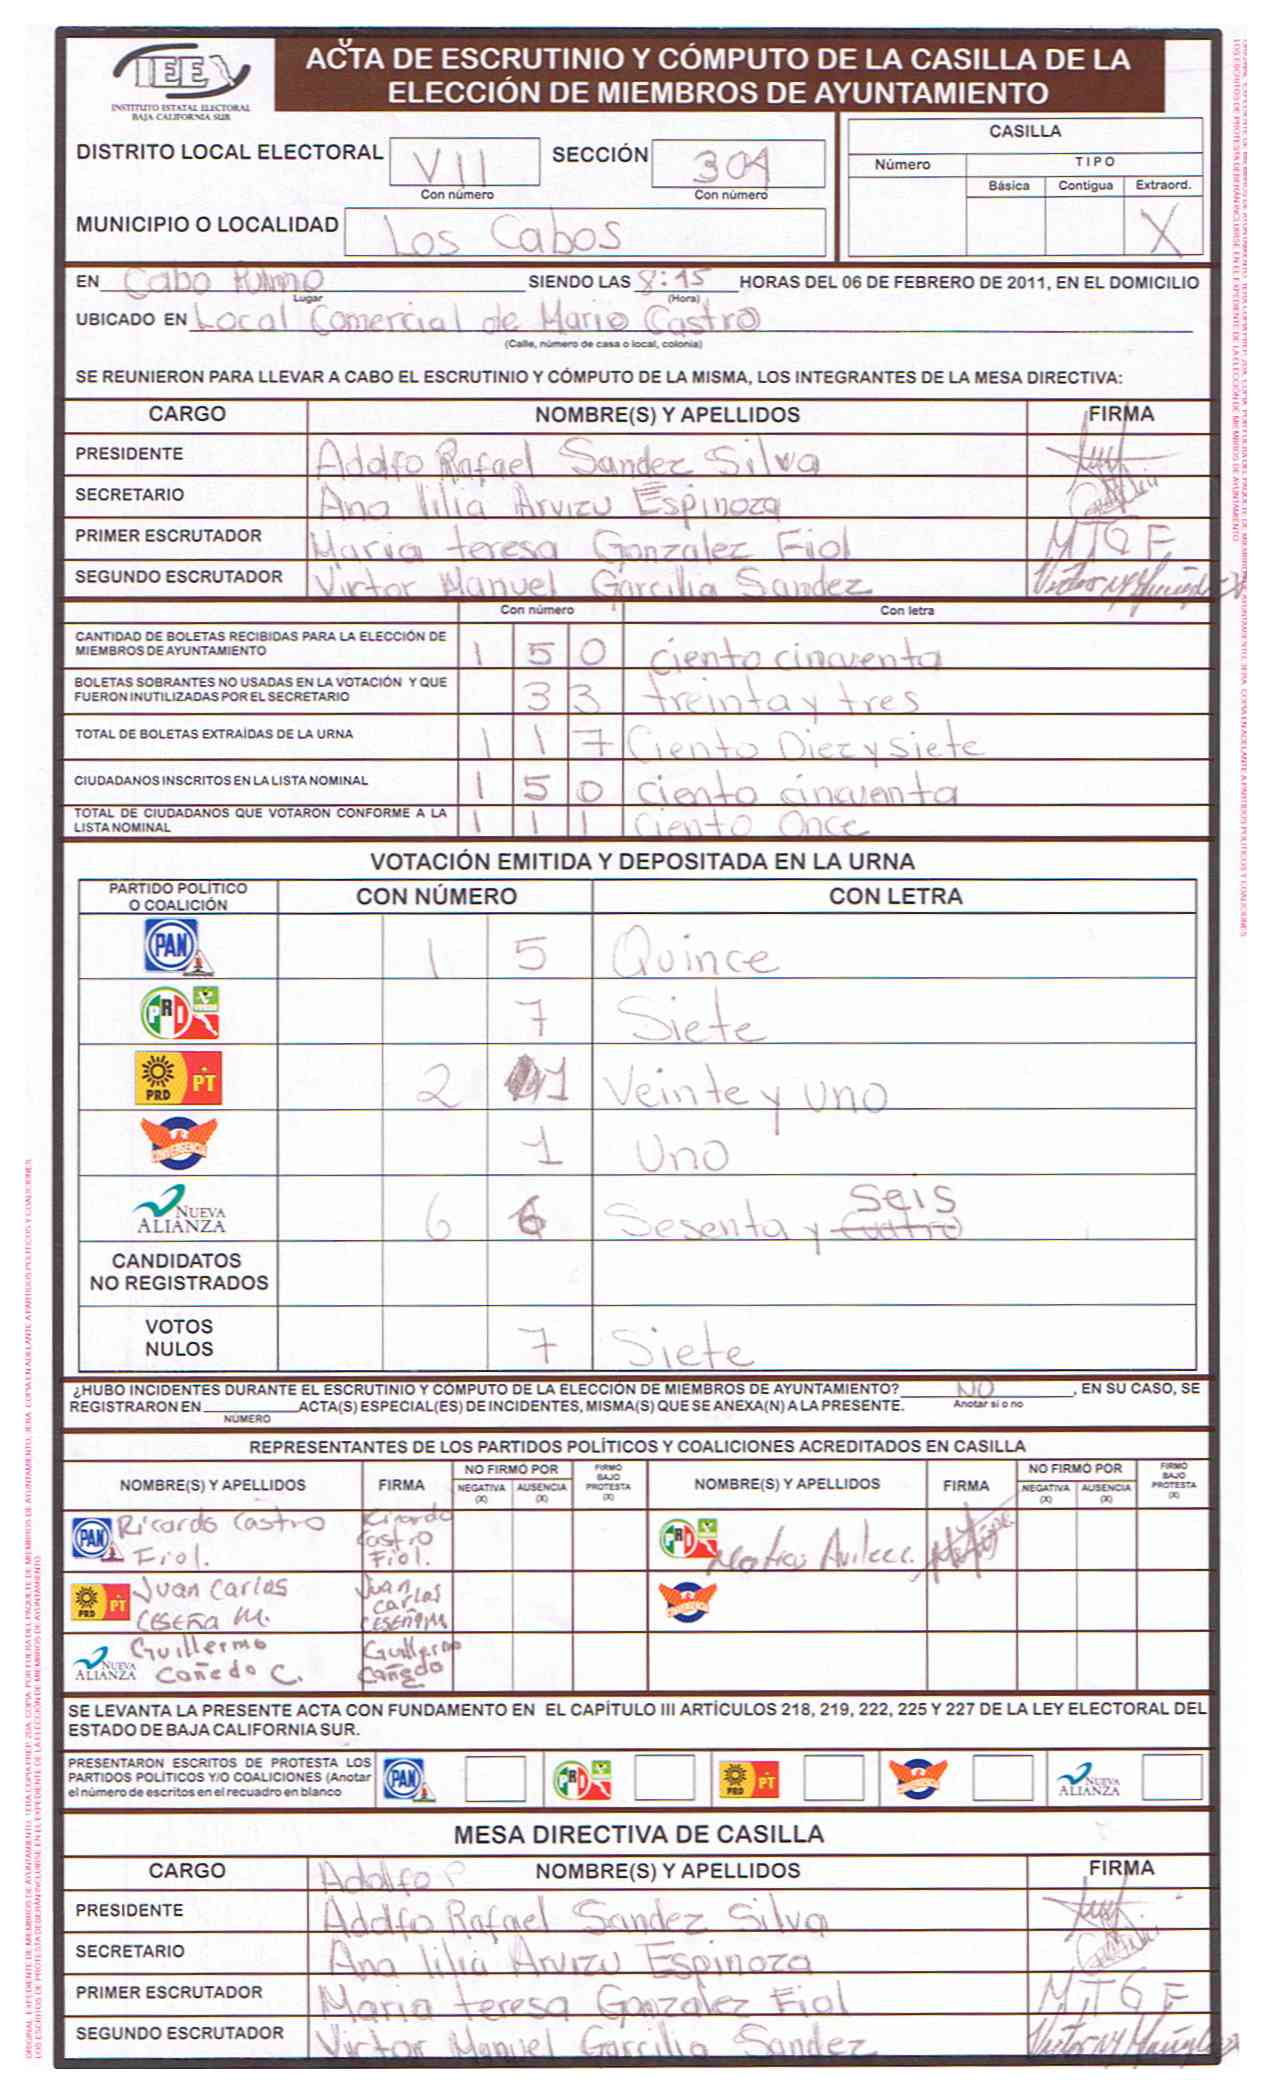 IEE
INSTITUTO ESTATAL ELECTORAL
BAJA CALIFORNIA SUR
ACTA DE ESCRUTINIO Y CÓMPUTO DE LA CASILLA DE LA
ELECCIÓN DE MIEMBROS DE AYUNTAMIENTO
DISTRITO LOCAL ELECTORAL VII SECCIÓN 304
Con número Con número
MUNICIPIO O LOCALIDAD Los Cabos
CASILLA
Número TIPO
Básica Contigua Extraord.
X
EN Cabo Pulmo SIENDO LAS 8:15 HORAS DEL 06 DE FEBRERO DE 2011, EN EL DOMICILIO
Lugar (Hora)
UBICADO EN Local Comercial de Mario Castro
(Calle, número de casa o local, colonia)
SE REUNIERON PARA LLEVAR A CABO EL ESCRUTINIO Y CÓMPUTO DE LA MISMA, LOS INTEGRANTES DE LA MESA DIRECTIVA:
CARGO NOMBRE(S) Y APELLIDOS FIRMA
PRESIDENTE Adolfo Rafael Sandez Silva
SECRETARIO Ana lilia Arvizu Espinoza
PRIMER ESCRUTADOR Maria teresa Gonzalez Fiol MTGF
SEGUNDO ESCRUTADOR Victor Manuel Garcilia Sandez
Con número Con letra
CANTIDAD DE BOLETAS RECIBIDAS PARA LA ELECCIÓN DE
MIEMBROS DE AYUNTAMIENTO 1 5 0 ciento cincuenta
BOLETAS SOBRANTES NO USADAS EN LA VOTACIÓN Y QUE
FUERON INUTILIZADAS POR EL SECRETARIO 3 3 treinta y tres
TOTAL DE BOLETAS EXTRAÍDAS DE LA URNA 1 1 7 Ciento Diez y Siete
CIUDADANOS INSCRITOS EN LA LISTA NOMINAL 1 5 0 ciento cincuenta
TOTAL DE CIUDADANOS QUE VOTARON CONFORME A LA
LISTA NOMINAL 1 1 1 Ciento Once
VOTACIÓN EMITIDA Y DEPOSITADA EN LA URNA
PARTIDO POLÍTICO
O COALICIÓN CON NÚMERO CON LETRA
PAN 1 5 Quince
PRI VERDE 7 Siete
PRD PT 2 1 Veinte y uno
CONVERGENCIA 1 Uno
NUEVA
ALIANZA 6 6 Sesenta y cuatro Seis
CANDIDATOS
NO REGISTRADOS
VOTOS
NULOS 7 Siete
¿HUBO INCIDENTES DURANTE EL ESCRUTINIO Y CÓMPUTO DE LA ELECCIÓN DE MIEMBROS DE AYUNTAMIENTO? NO, EN SU CASO, SE
REGISTRARON EN ACTA(S) ESPECIAL(ES) DE INCIDENTES, MISMA(S) QUE SE ANEXA(N) A LA PRESENTE. Anotar si o no
NÚMERO
REPRESENTANTES DE LOS PARTIDOS POLÍTICOS Y COALICIONES ACREDITADOS EN CASILLA
NOMBRE(S) Y APELLIDOS FIRMA NO FIRMÓ POR NEGATIVA (X) AUSENCIA (X) FIRMÓ BAJO PROTESTA (X) NOMBRE(S) Y APELLIDOS FIRMA NO FIRMÓ POR NEGATIVA (X) AUSENCIA (X) FIRMÓ BAJO PROTESTA (X)
PAN Ricardo Castro Fiol. Ricardo Castro Fiol. PRI
PRD PT Juan Carlos CESEÑA M. Juan Carlos CESEÑA M. CONVERGENCIA
NUEVA ALIANZA Guillermo Cañedo C. Guillermo Cañedo
SE LEVANTA LA PRESENTE ACTA CON FUNDAMENTO EN EL CAPÍTULO III ARTÍCULOS 218, 219, 222, 225 Y 227 DE LA LEY ELECTORAL DEL
ESTADO DE BAJA CALIFORNIA SUR.
PRESENTARON ESCRITOS DE PROTESTA LOS
PARTIDOS POLÍTICOS Y/O COALICIONES (Anotar
el número de escritos en el recuadro en blanco PAN PRI PRD PT CONVERGENCIA NUEVA ALIANZA
MESA DIRECTIVA DE CASILLA
CARGO Adolfo NOMBRE(S) Y APELLIDOS FIRMA
PRESIDENTE Adolfo Rafael Sandez Silva
SECRETARIO Ana lilia Arvizu Espinoza
PRIMER ESCRUTADOR Maria teresa Gonzalez Fiol MTGF
SEGUNDO ESCRUTADOR Victor Manuel Garcilia Sandez